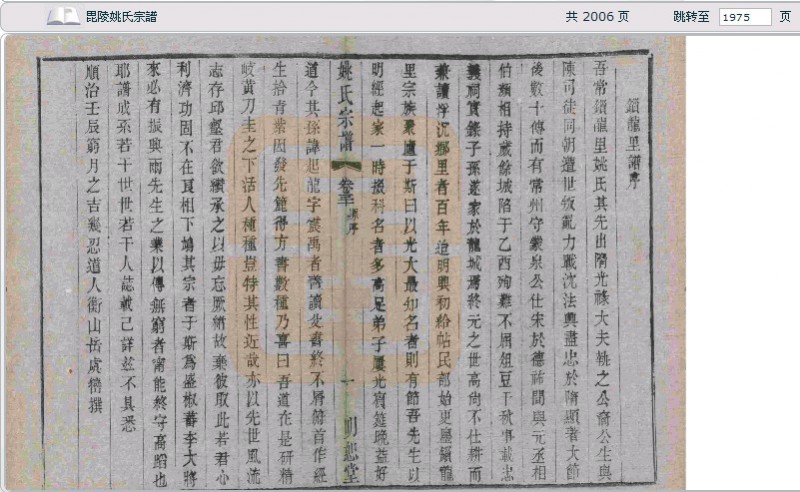 毘陵姚氏宗譜
共 2006 页
跳转至 1975 页
鎖龍里譜序
吾常鎖龍里姚氏其先出隋光祿大夫之公裔公生與
陳司徒同朝遭世叛亂力戰沈法興盡忠於隋顯著大節
後數十傳而有常州守公仕宋於德祐間與元丞相
伯顏相持歲餘城陷于乙酉殉難不屈俎豆千秋事載忠
義祠實錄子孫遂家於龍城焉終元之世高尚不仕耕而
兼讀浮沉鄉里者百年迨明興初給帖民部始更廛鎖龍
里宗族聚廬于斯曰以光大最知名者則有節吾先生以
明經起家一時掇科名者多高足弟子屢光賓筵晚益好
姚氏宗譜 卷 譜序 一 明恕堂
道令其孫諱旭龍字宸禹者舊讀父書終不屑俯首作經
生拾青紫因發先篋得方書數種乃喜曰吾道在是研精
岐黃刀圭之下活人種種豈特其性近哉亦以先世風流
志存邱壑君欲纘承之以毋忘厥緒故棄彼取此若君心
利濟功固不在良相下鳩其宗者于斯為盛椒蕃李大將
來必有振興兩先生之業以傳無窮者甯能終守高蹈也
耶譜成系若干世世若干人誌載已詳茲不具悉
順治壬辰菊月之吉忍道人衡山岳虞巒撰